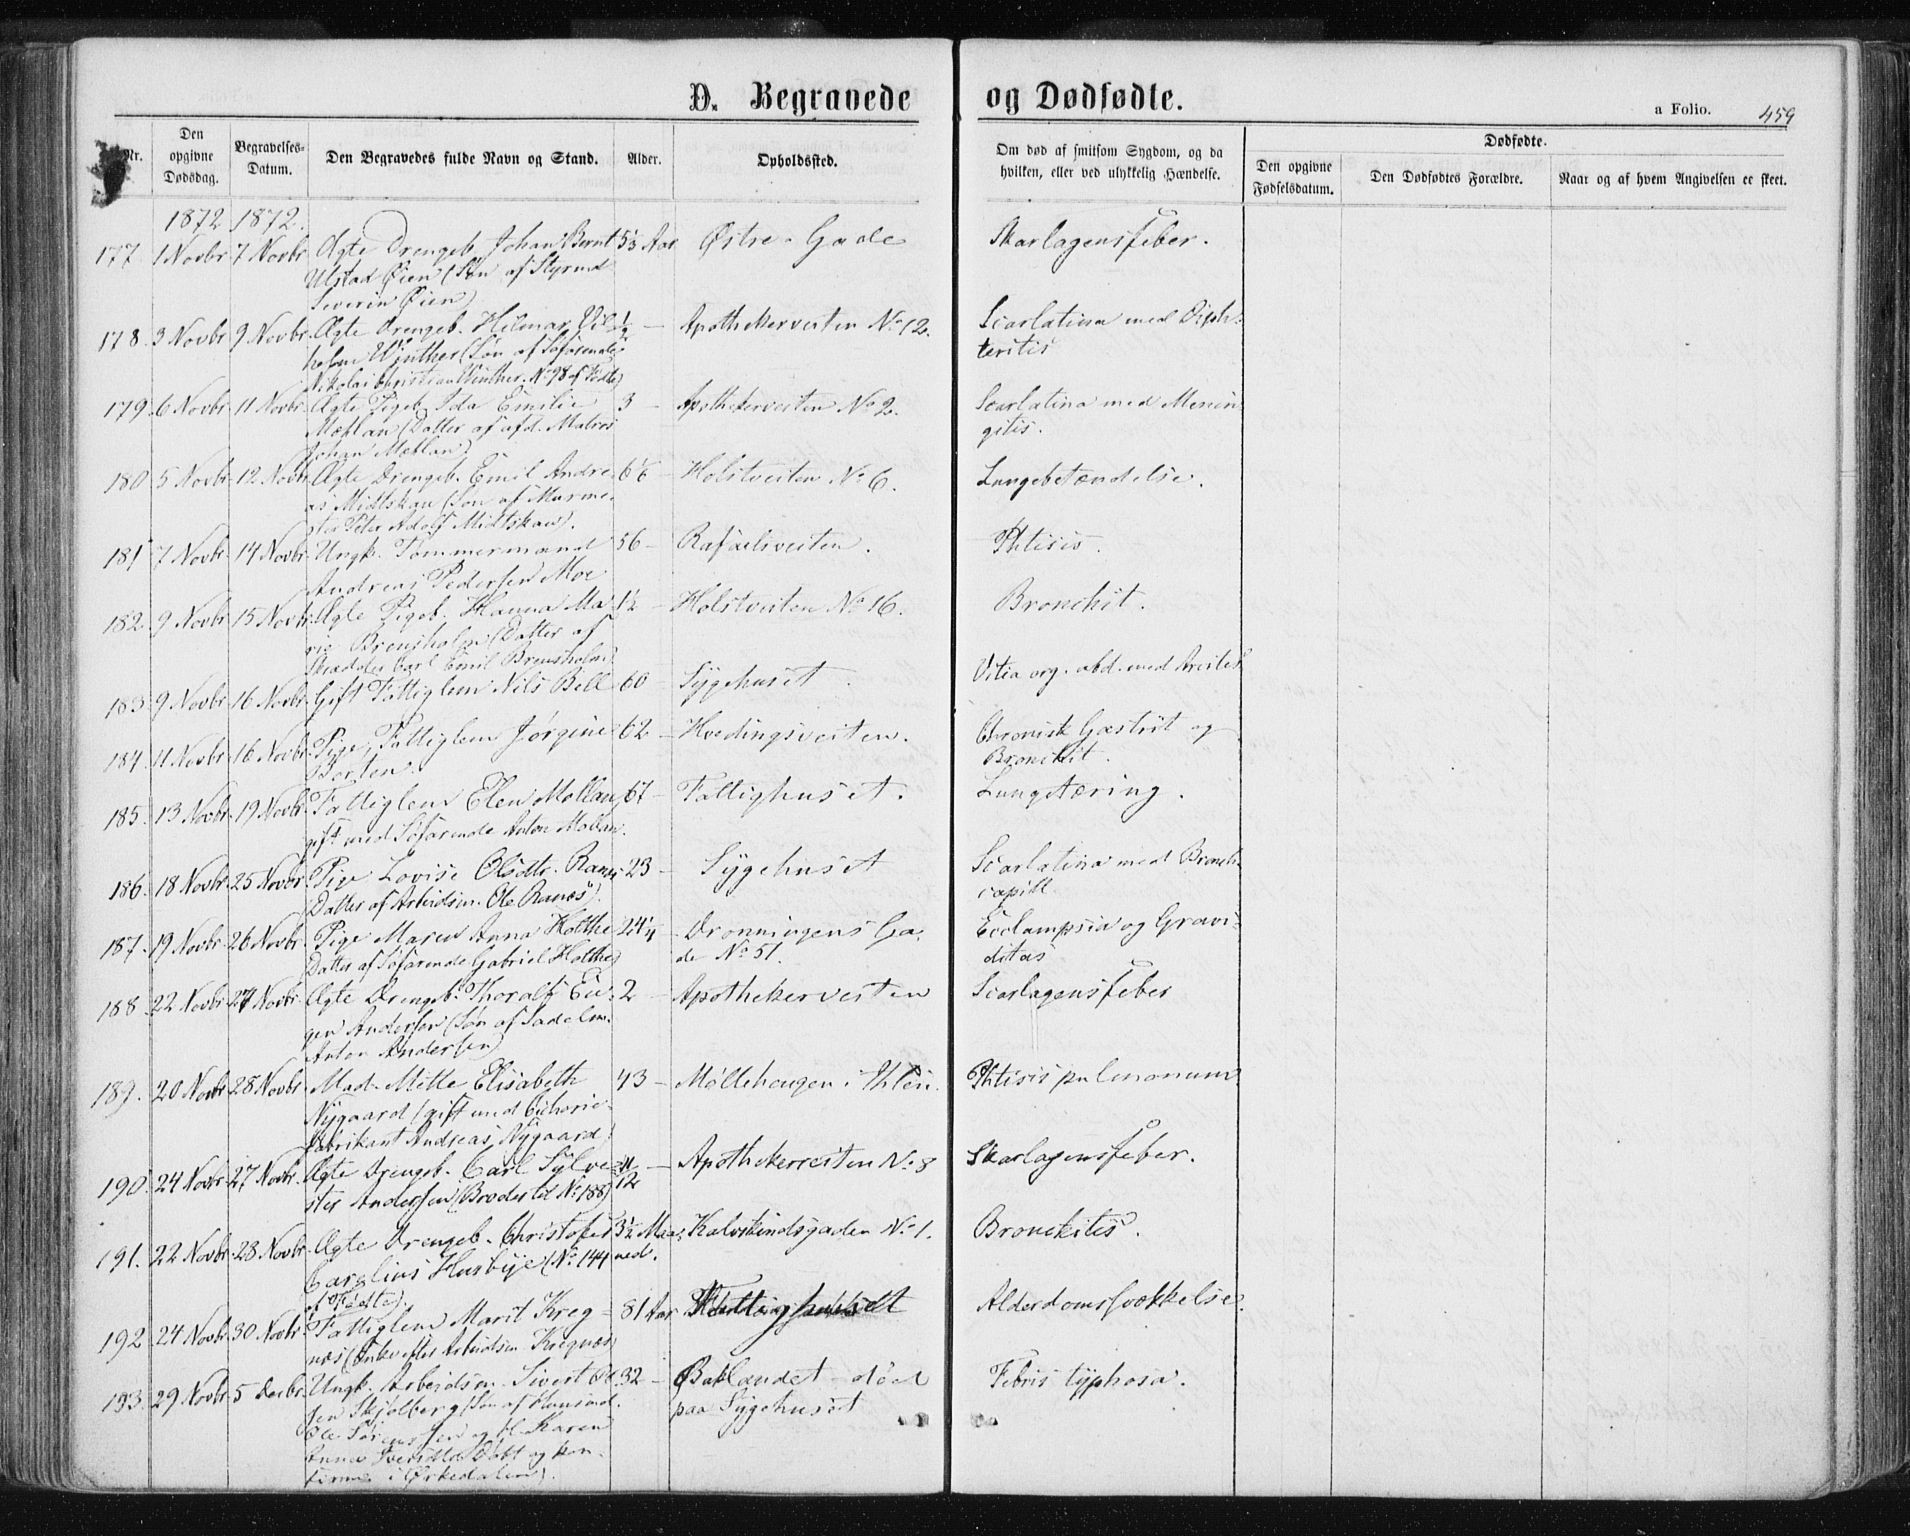 D. Begravede og Dødfødte.
a Folio. 459
Nr.
Den opgivne Dødsdag.
Begravelses-Datum.
Den Begravedes fulde Navn og Stand.
Alder.
Opholdssted.
Om død af smitsom Sygdom, og da hvilken, eller ved ulykkelig Hændelse.
Dødfødte.
Den opgivne Fødselsdatum.
Den Dødfødtes Forældre.
Naar og af hvem Angivelsen er skeet.
1872 1872.
177 1 Novbr 7 Novbr Ægte Drengeb. Johan Bernt 5½ Aar Østre Gade Skarlagensfeber.
Ulstad Øien (Søn af Styrmd
Severin Øien)
178. 3 Novbr 9 Novbr. Ægte Drengeb. Hilmar Vil- ½ — Apothekerveiten No 12. Scarlatina med Diph-
helm Winther (Søn af Søfarende teritis
Nikolai Christian Winther. No 98 af Fødte)
179. 6 Novbr. 11 Novbr. Ægte Pigeb. Ida Emilie 3 — Apothekerveiten No 2. Scarlatina med Menin
Mællan (Datter af afd. Matros gitis.
Johan Mællan)
180 5 Novbr. 12 Novbr Ægte Drengeb. Emil Andre- 6 Holstveiten No 6. Lungebetændelse.
as Midtskau (Søn af Murme-
ster Peter Adolf Midtskau).
181 7 Novbr. 14 Novbr. Ungk. Tømmermand 56 — Rafaelsveiten. Phtisis.
Andreas Pedersen Moe
182. 9 Novbr. 15 Novbr. Ægte Pigeb. Hanna Ma 1½ — Holstveiten No 16. Bronchit.
rie Brensholm (Datter af
Skrædder Carl Emil Brensholm)
183. 9 Novbr. 16 Novbr. Gift Fattiglem Nils Bell 60 — Sygehuset. Vitia org. abd. med
184. 11 Novbr. 16 Novbr. Pige, Fattiglem Jørgine 62 — Hvedingsveiten. Chronisk Gastrit og
Borten. Bronchit.
185. 13 Novbr. 19 Novbr. Fattiglem Elen Møllan 67 — Fattighuset. Lungetæring.
gift med Søfarende Anton Møllan.
186. 18 Novbr. 25 Novbr Pige Lovise Olsdtr. Ranes 23 — Sygehuset Scarlatina med Bronch.
(Datter af Arbeidsm. Ole Ranes). capill.
187. 19 Novbr. 26 Novbr. Pige Maren Anna Holthe 24¼ — Dronningens Ga- Ecclampsia og Gravi-
Datter af Søfarende Gabriel Holthe) de No 51. ditas
188. 22 Novbr. 27 Novbr. Ægte Drengeb. Thoralf Eu- 2 — Apothekerveiten Scarlagensfeber
gen Andersen (Søn af Sadelm.
Anton Andersen)
189. 20 Novbr. 28 Novbr. Mad. Mette Elisabeth 43 — Møllehaugen i Ihlen. Phtisis pulmonum
Nygaard (gift med Cichorie-
fabrikant Andreas Nygaard)
190. 24 Novbr. 27 Novbr. Ægte Drengeb. Carl Sylve- 11/12 — Apothekerveiten No. 8 Skarlagensfeber.
ster Andersen (Broder til No 188)
191. 22 Novbr. 28 Novbr. Ægte Drengeb. Christofer 3½ Maa- Kalvskindsgaden No 1. Bronchitis.
Carelius Husbye (No 144 ned.
af Fødte).
192. 24 Novbr. 30 Novbr. Fattiglem Marit Kreg- 81 Aar Fattighuset Alderdomssvækkelse.
næs (Enke efter Arbeidsm. Kregnæs)
193. 29 Novbr. 5 Decbr. Ungk. Arbeidsm. Sivert Ol- 32 — Baklandet — død Febris typhosa.
sen Skjølberg (Søn af Husmd. paa Sygehuset
Ole Sørenssen og H. Karen
Anna Døbt og kon-
firm. i Ørkedalen).